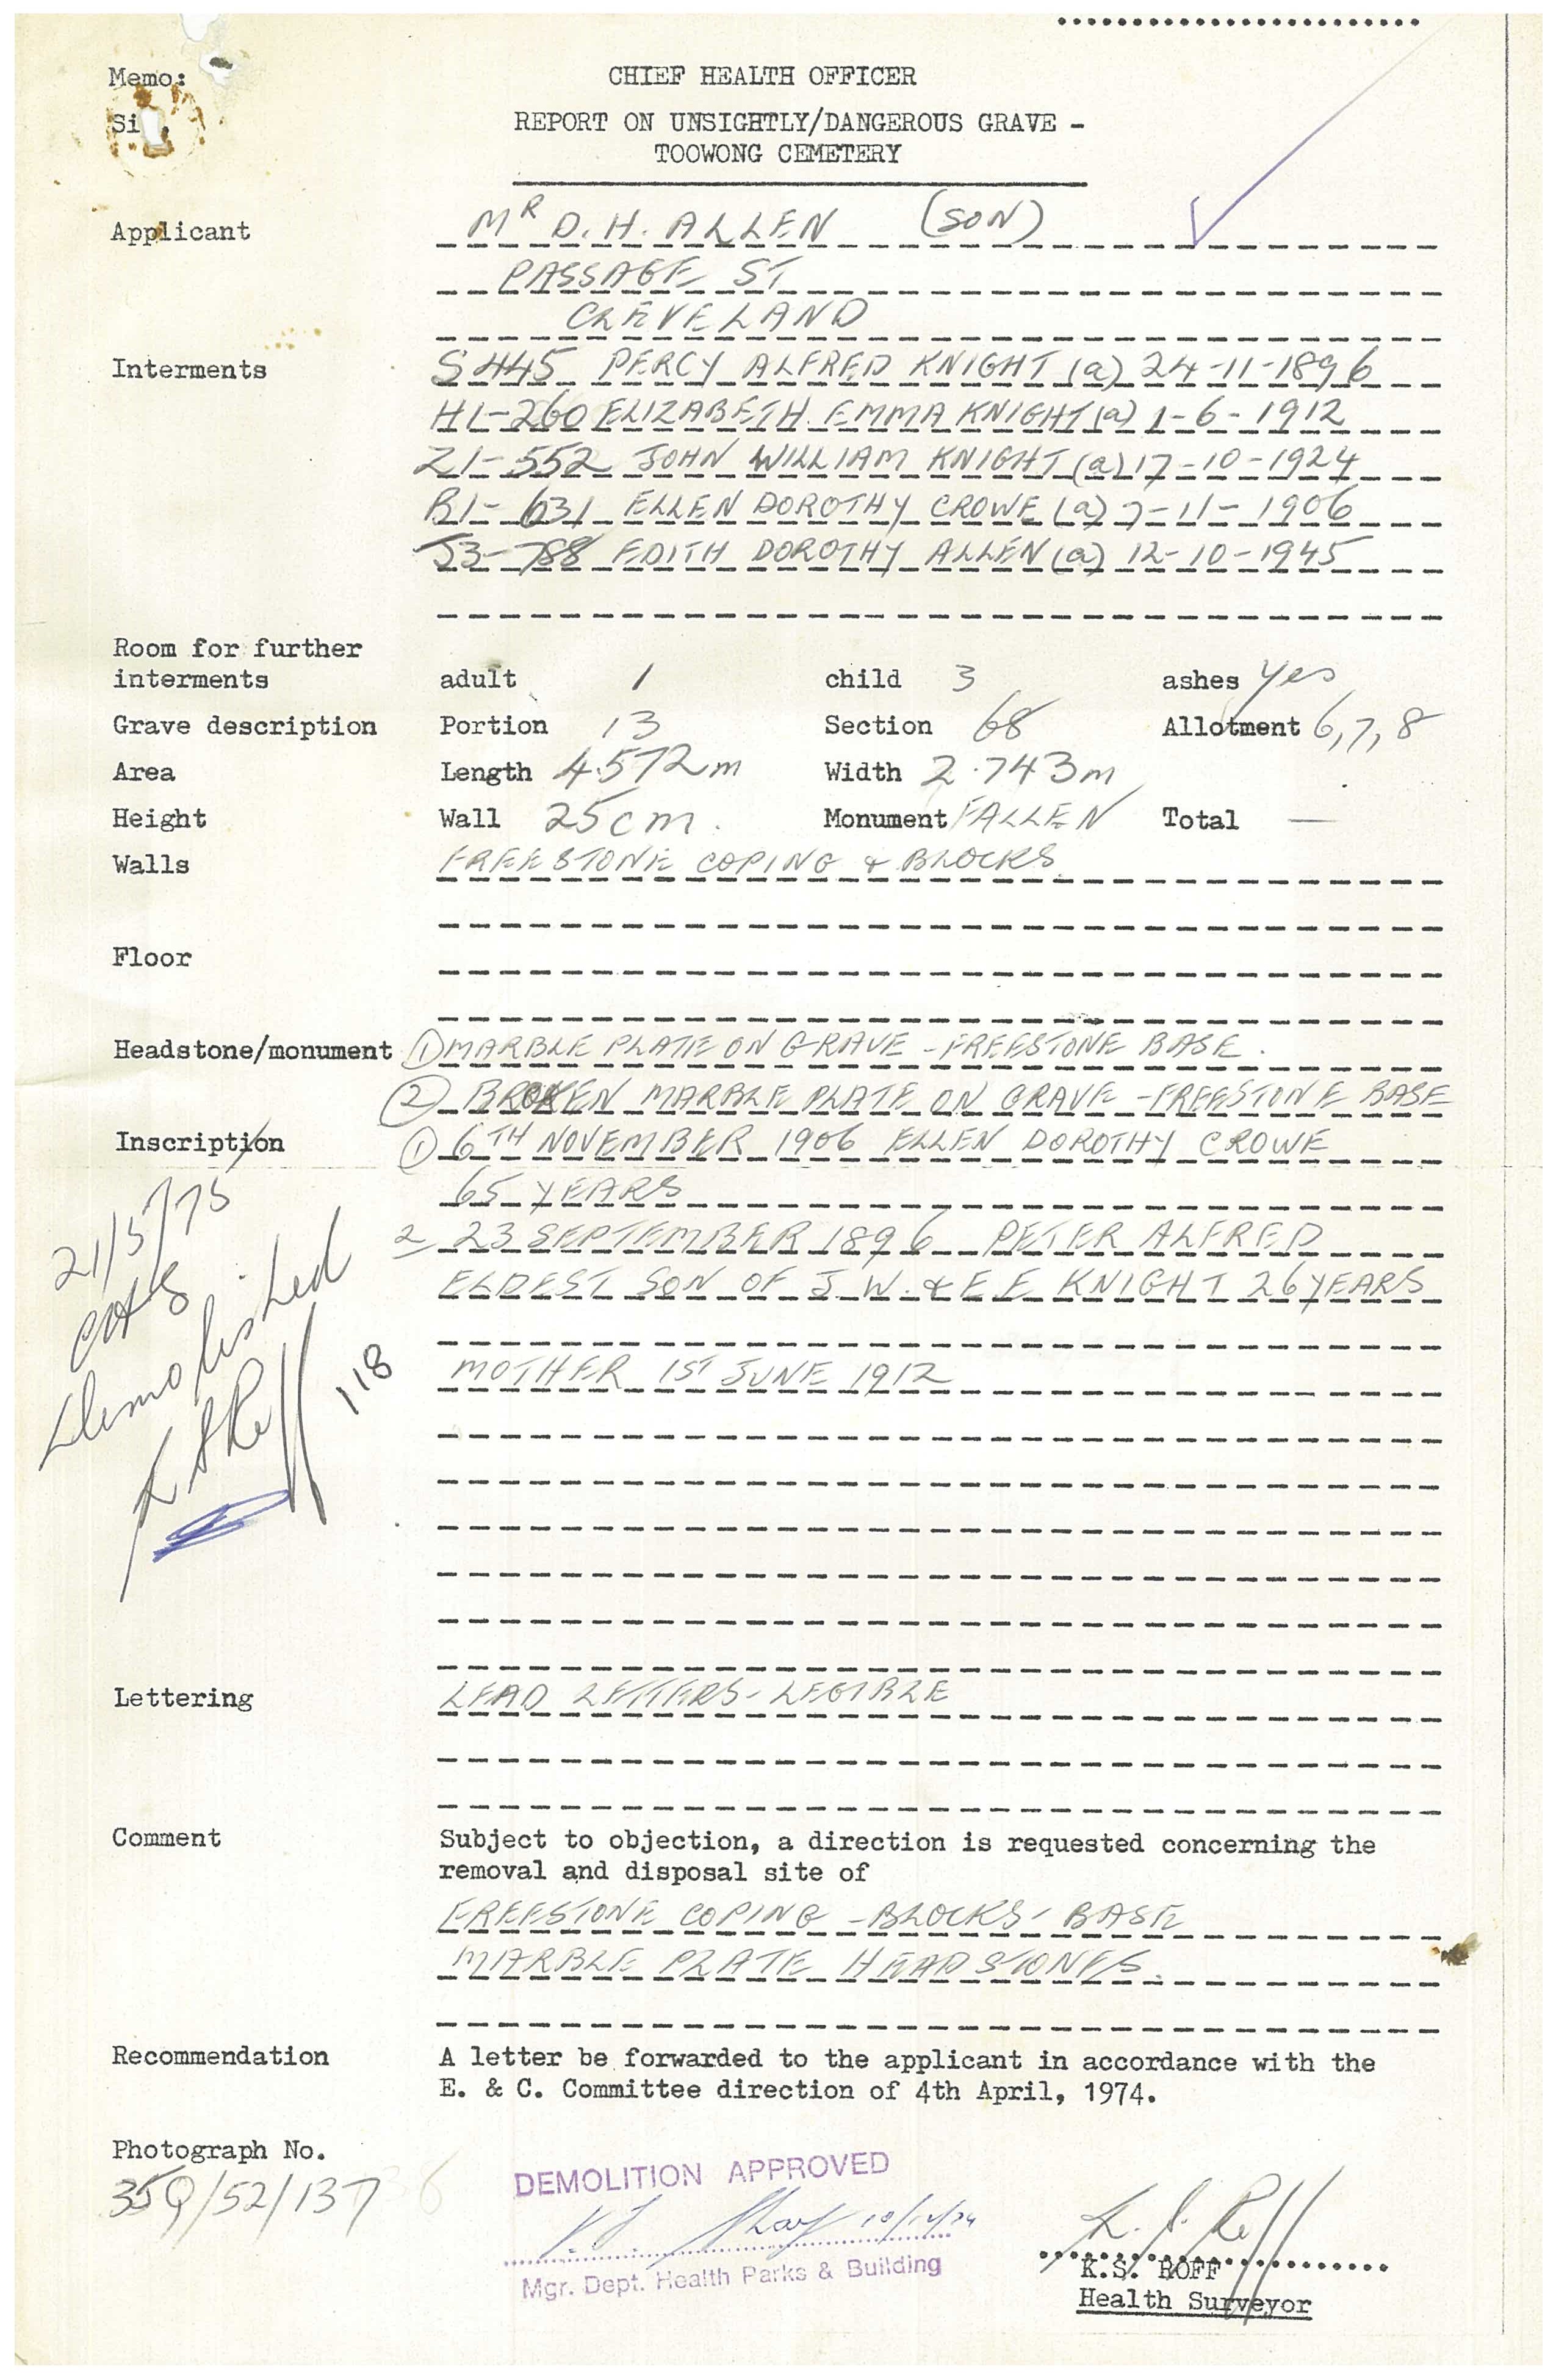 Memo:
CHIEF HEALTH OFFICER
REPORT ON UNSIGHTLY/DANGEROUS GRAVE -
TOOWONG CEMETERY
Applicant MR D. H. ALLEN (SON)
PASSAGE ST
CLEVELAND
Interments S 445 PERCY ALFRED KNIGHT (a) 24-11-1896
H1-260 ELIZABETH EMMA KNIGHT (a) 1-6-1912
Z1-552 JOHN WILLIAM KNIGHT (a) 17-10-1924
B1-631 ELLEN DOROTHY CROWE (a) 7-11-1906
J3-788 EDITH DOROTHY ALLEN (a) 12-10-1945
Room for further
interments adult 1 child 3 ashes yes
Grave description Portion 13 Section 68 Allotment 6,7,8
Area Length 4.572m Width 2.743m
Height Wall 25cm. Monument FALLEN Total —
Walls FREESTONE COPING & BLOCKS
Floor
Headstone/monument ① MARBLE PLATE ON GRAVE - FREESTONE BASE.
② BROKEN MARBLE PLATE ON GRAVE - FREESTONE BASE
Inscription ① 6TH NOVEMBER 1906 ELLEN DOROTHY CROWE
65 YEARS
2 23 SEPTEMBER 1896 PETER ALFRED
ELDEST SON OF J. W. & E E KNIGHT 26 YEARS
MOTHER 1ST JUNE 1912
21/5/75
Demolished
118
Lettering LEAD LETTERS - LEGIBLE
Comment Subject to objection, a direction is requested concerning the
removal and disposal site of
FREESTONE COPING - BLOCKS - BASE
MARBLE PLATE HEADSTONES.
Recommendation A letter be forwarded to the applicant in accordance with the
E. & C. Committee direction of 4th April, 1974.
Photograph No.
35Q/52/137
DEMOLITION APPROVED
10/12/74
Mgr. Dept. Health Parks & Building
K.S. ROFF
Health Surveyor